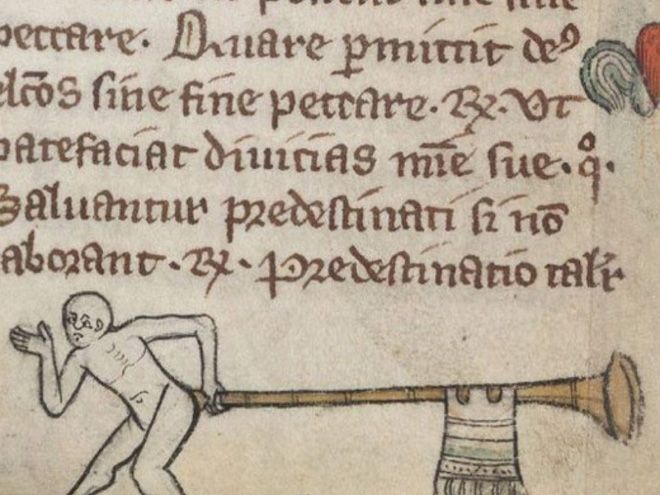 peccare. Quare ꝑmittit deꝰ
elc̄os sine fine peccare. ℞. Vt
patefaciat diuicias mīe sue. qͦ.
Saluantur predestinati si nō
laborant. ℞. Predestinatio talr̄